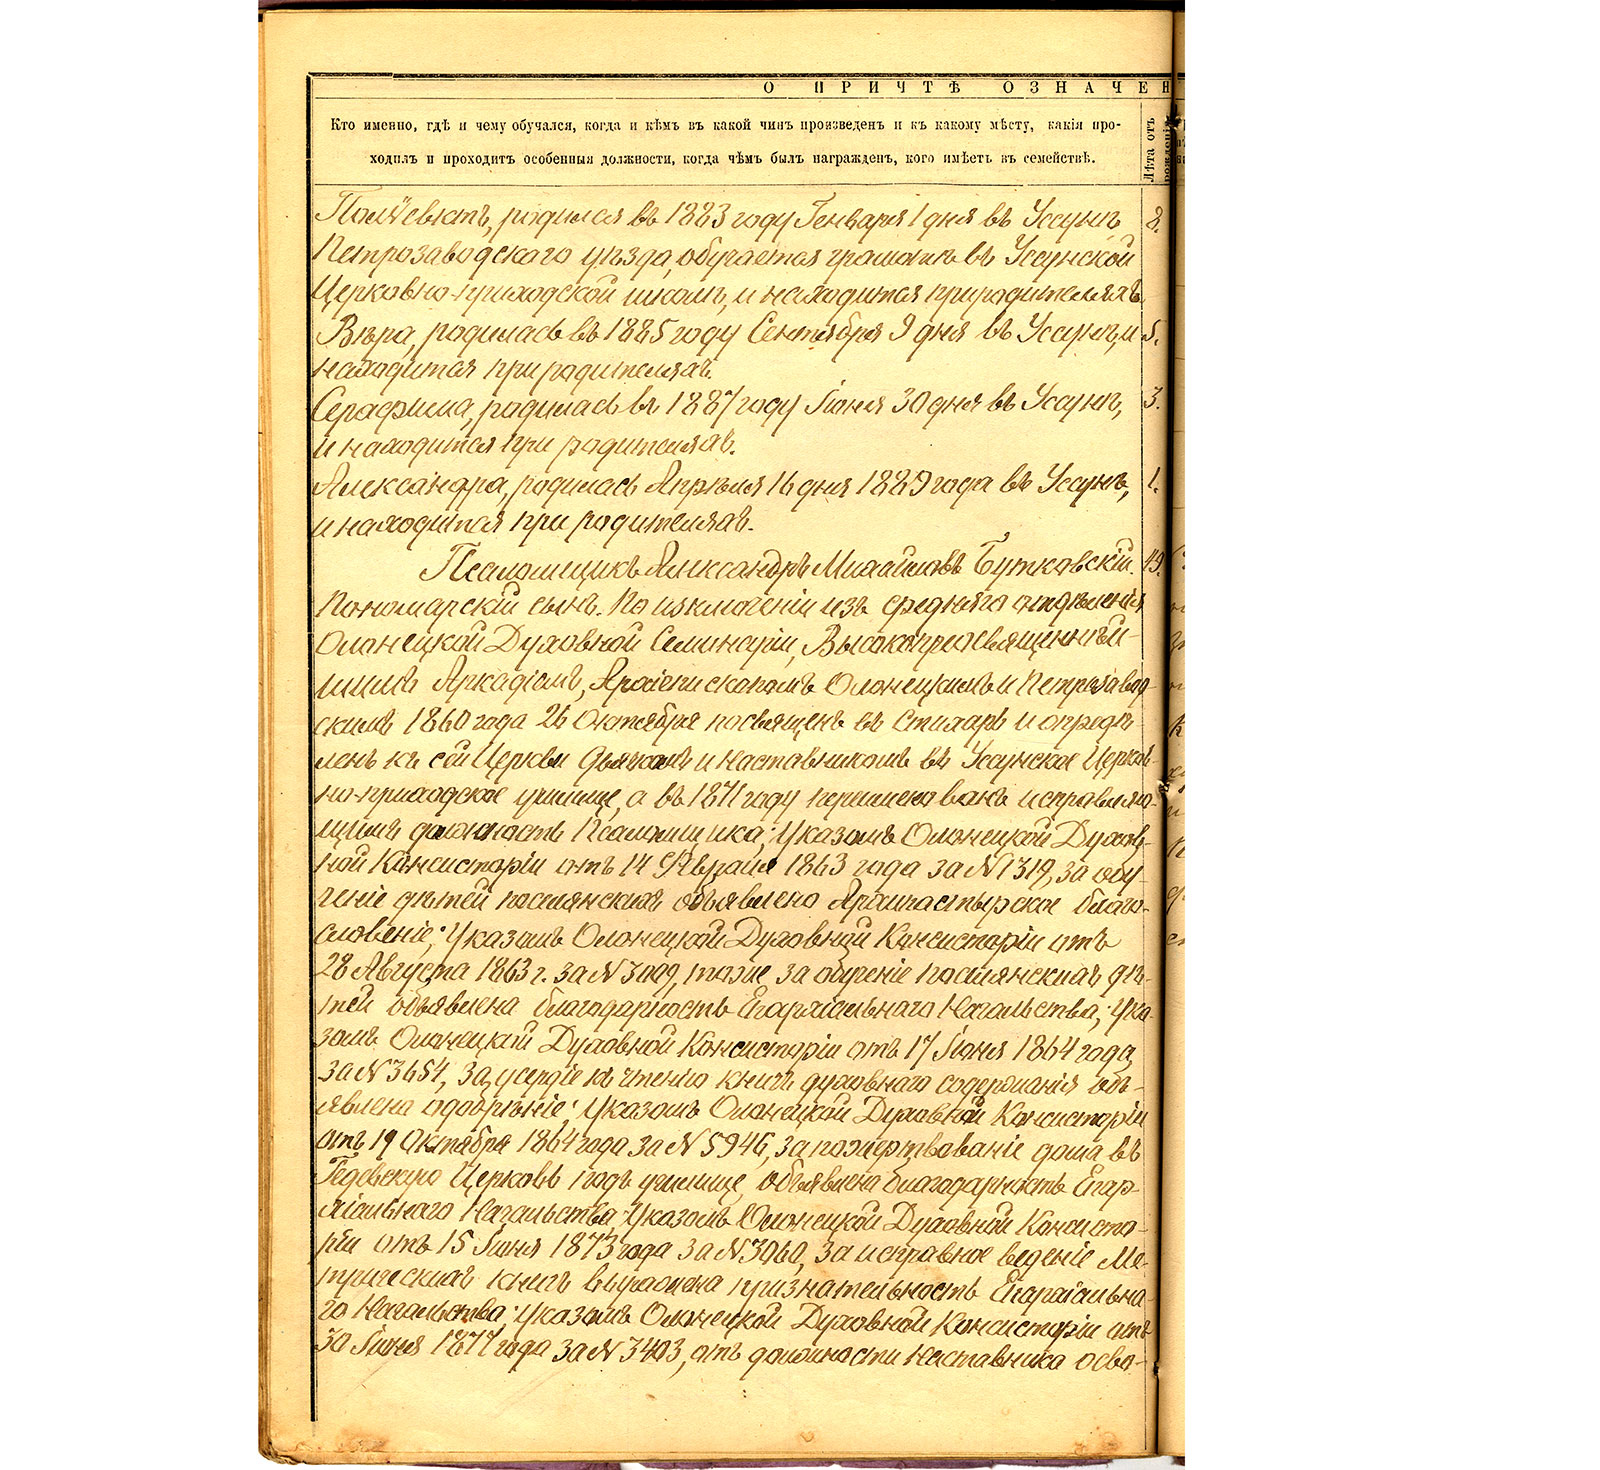 О ПРИЧТѢ ОЗНАЧЕН
Кто именно, гдѣ и чему обучался, когда и кѣмъ въ какой чинъ произведенъ и къ какому мѣсту, какія про-
ходилъ и проходитъ особенныя должности, когда чѣмъ былъ награжденъ, кого имѣетъ въ семействѣ.
Лѣта отъ
рожденія.
Поліевктъ, родился въ 1883 году Генваря 1 дня въ Уссунѣ 8.
Петрозаводскаго уѣзда, обучается грамотѣ въ Уссунской
Церковно-приходской школѣ, и находится при родителяхъ.
Вѣра, родилась въ 1885 году Сентября 9 дня въ Уссунѣ, и 5.
находится при родителяхъ.
Серафима, родилась въ 1887 году Іюня 30 дня въ Уссунѣ, 3.
и находится при родителяхъ.
Александра, родилась Апрѣля 16 дня 1889 года въ Уссунѣ, 1.
и находится при родителяхъ.
Псаломщикъ Александръ Михайловъ Бутковскій. 49.
Пономарскій сынъ. По исключеніи изъ средняго отдѣленія
Олонецкой Духовной Семинаріи, Высокопреосвященнѣй-
шимъ Аркадіемъ, Архіепископомъ Олонецкимъ и Петрозавод-
скимъ 1860 года 26 Октября посвященъ въ стихарь и опредѣ-
ленъ къ сей Церкви дьячкомъ и наставникомъ въ Уссунское Церков-
но-приходское училище, а въ 1871 году переименованъ исправляю-
щимъ должность Псаломщика; Указомъ Олонецкой Духов-
ной Консисторіи отъ 14 Февраля 1863 года за № 1319, за обу-
ченіе дѣтей поселянскихъ объявлено Архипастырское благо-
словеніе; Указомъ Олонецкой Духовной Консисторіи отъ
28 Августа 1863 г. за № 3009, тоже за обученіе поселянскихъ дѣ-
тей объявлена благодарность Епархіальнаго Начальства; Ука-
зомъ Олонецкой Духовной Консисторіи отъ 17 Іюня 1864 года,
за № 3654, за усердіе къ чтенію книгъ духовнаго содержанія объ-
явлено одобреніе; Указомъ Олонецкой Духовной Консисторіи
отъ 19 Октября 1864 года за № 5946, за пожертвованіе дома въ
Церковь подъ училище, объявлена благодарность Епар-
хіальнаго Начальства; Указомъ Олонецкой Духовной Консисто-
ріи отъ 15 Іюня 1873 года за № 3060, за исправное веденіе Ме-
трическихъ книгъ выражена признательность Епархіальна-
го Начальства; Указомъ Олонецкой Духовной Консисторіи отъ
30 Іюня 1877 года за № 3403, отъ должности Наставника осво-